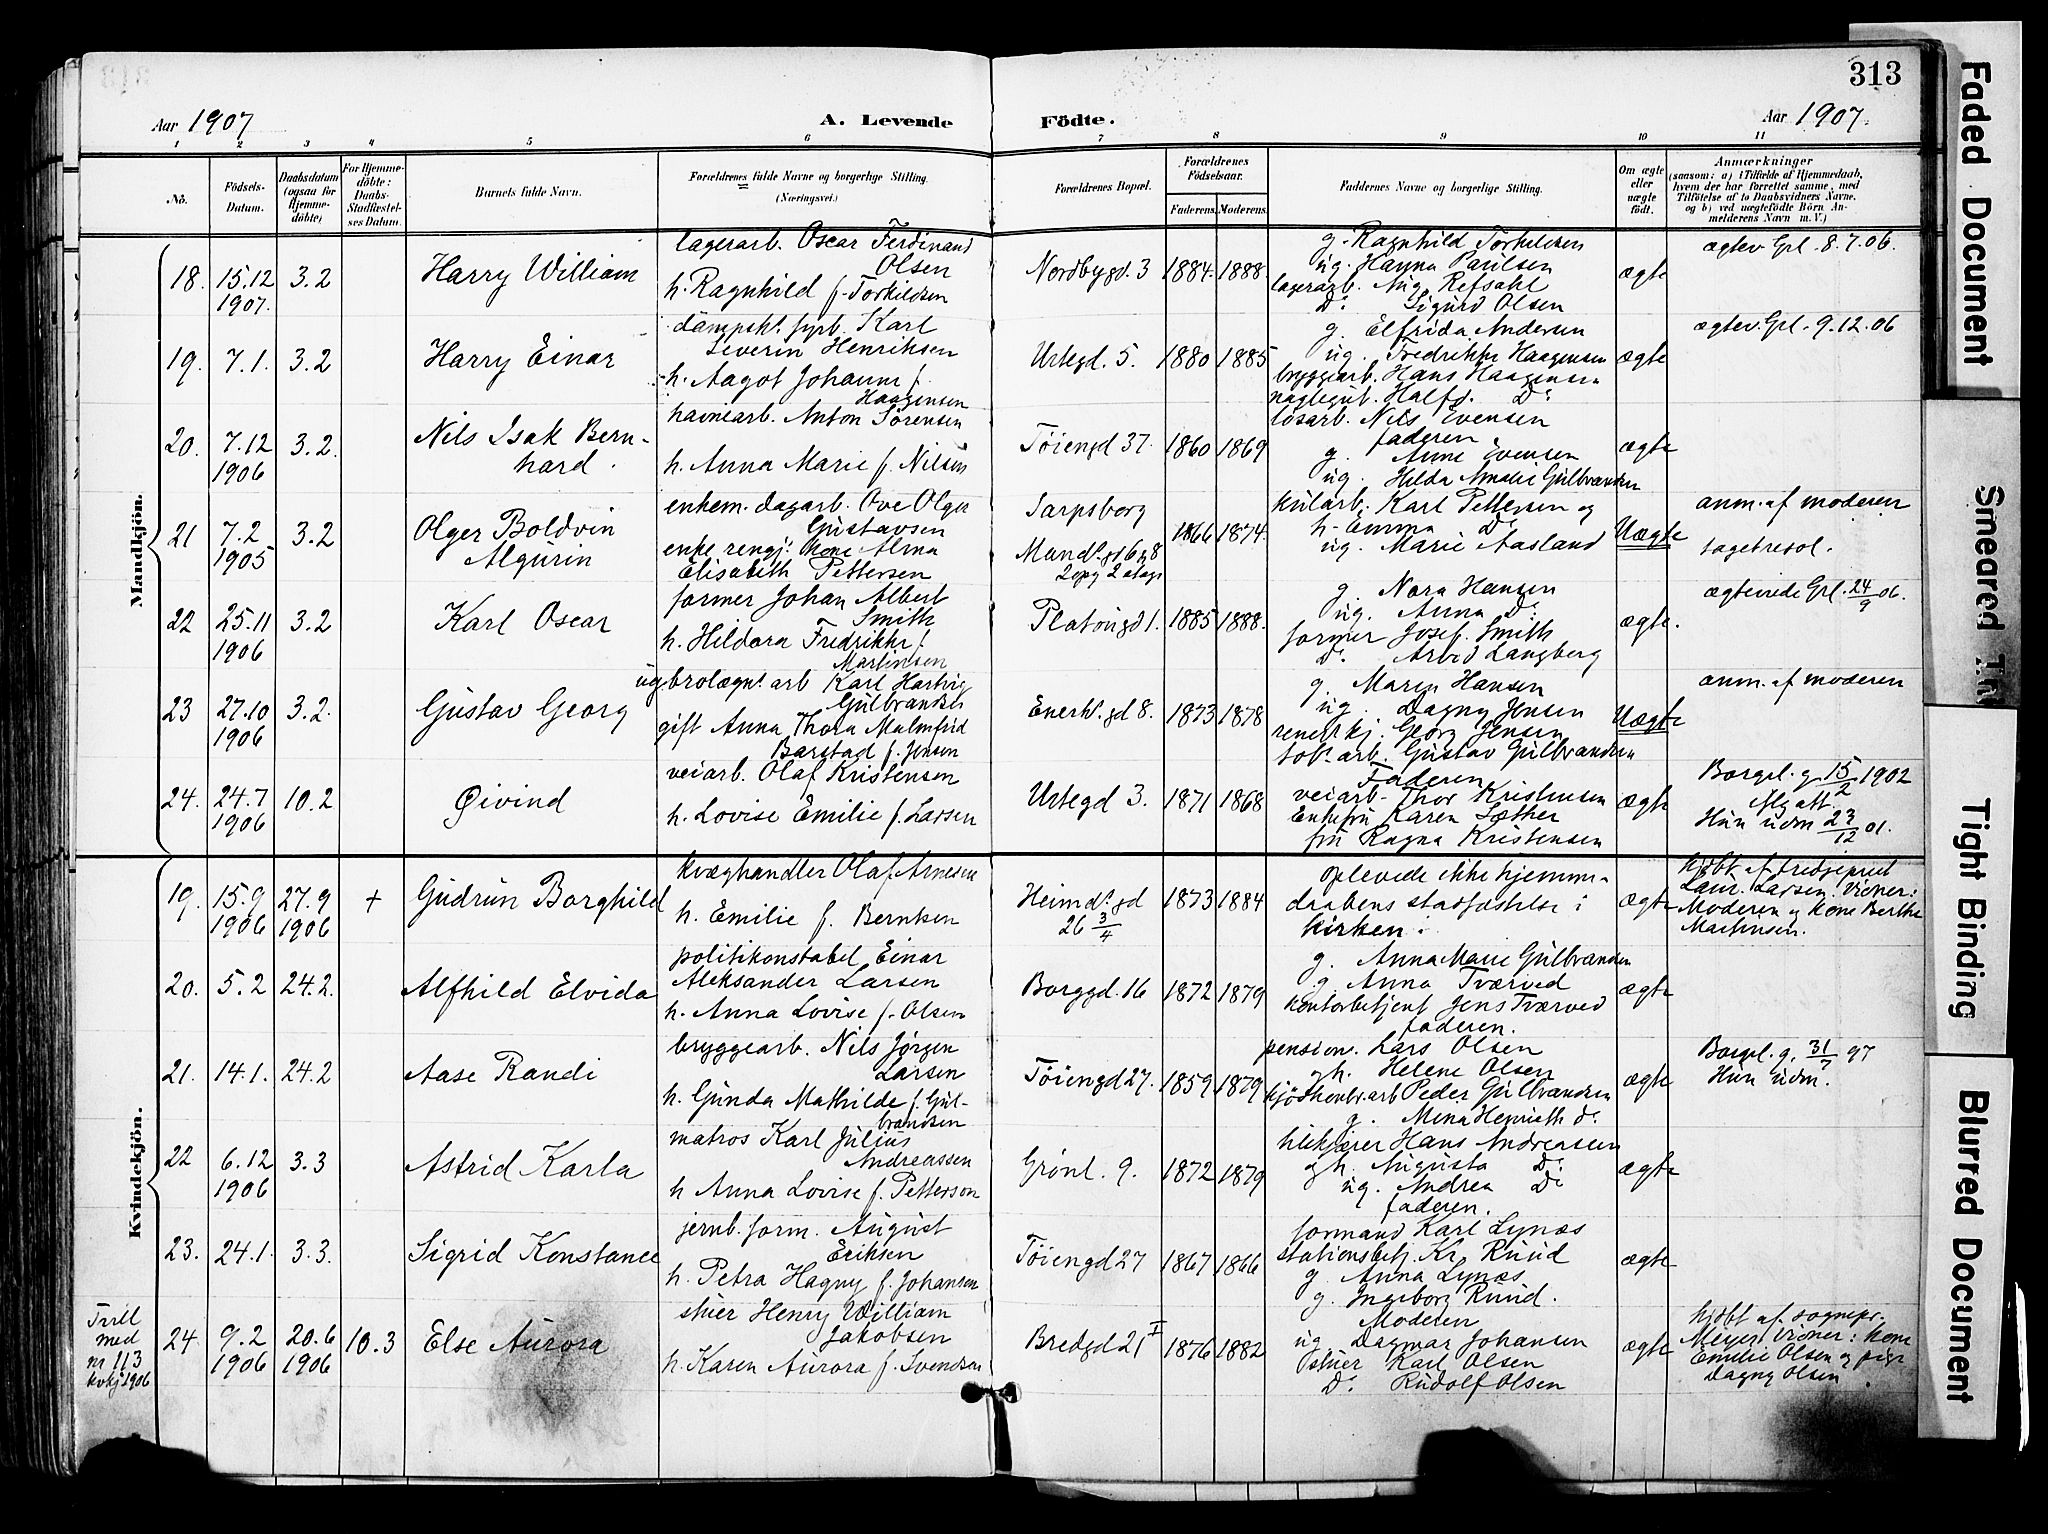 313
Aar 1907
A. Levende
Födte.
Aar 1907.
1 2 3 4 5 6 7 8 9 10 11
No.
Födsels-
Datum.
Daabsdatum
(ogsaa for
Hjemme-
döbte)
For Hjemme-
döbte:
Daabs-
Stadfæstel-
ses Datum.
Barnets fulde Navn.
Forældrenes fulde Navne og borgerlige Stilling.
(Næringsvei.)
Forældrenes Bopæl.
Forældrenes
Födselsaar.
Faderens. Moderens.
Faddernes Navne og borgerlige Stilling.
Om ægte
eller
uægte
födt.
Anmærkninger
(saasom: a) i Tilfælde af Hjemmedaab,
hvem der har forrettet samme, med
Tilföielse af to Daabsvidners Navne.
og b) ved uægtefödte Börn An-
melderens Navn m. V.)
Mandkjön.
18. 15.12
1907.
3.2
Harry William
lagerarb. Oscar Ferdinand
Olsen
h. Ragnhild f. Torkildsen
Nordbygd. 3
1884. 1888.
g. Ragnhild Torkildsen
ug. Hanna Paulsen
lagerarb. Aug. Refsahl
Do Sigurd Olsen
ægte
ægtev. Gpl. 8.7.06.
19. 7.1. 3.2
Harry Einar
dampsk. fyrb. Karl
Severin Henriksen
h. Aagot Johanne f.
Haagensen
Urtegd. 5.
1880 1885
g. Elfrida Andersen
ug. Fredrikke Haagensen
bryggearb. Hans Haagensen
naglegut. Halfd. Do
ægte
ægtev. Gpl. 9.12.06
20. 7.12
1906
3.2.
Nils Isak Bern-
hard.
havnearb. Anton Sørensen
h. Anna Marie f. Nilsen
Töiengd 37.
1860 1869
løsarb. Nils Evensen
faderen.
g. Anne Evensen
ug. Hilda Amalie Gulbrandsen
ægte
21 7.2
1905
3.2
Olger Boldvin
Algurin
enkem. dagarb. Ove Olger
Gustavsen
enke rengj. kone Alma
Elisabeth Pettersen
Sarpsborg
Mandl.gd 6 g 8
2 opg 2 etage
1866 1874.
kularb. Karl Pettersen og
h. Emma Do
ug. Marie Aasland
Uægte
anm. af moderen
22 25.11
1906
3.2
Karl Oscar
former Johan Albert
Smith
h. Hildora Fredrikke f.
Martinsen
Platougd 1.
1885 1888.
g. Nora Hansen
ug. Anna Do
former Josef Smith
Do Arvid Langberg
ægte.
ægteviede Gpl. 24/9 06.
23 27.10
1906
3.2.
Gustav Georg
ug brolægn. arb Karl Hartvig
Gulbrandsen
gift Anna Thora Malmfrid
Barstad f. Jensen
Enerh. gd 8.
1873 1878
g. Maren Hansen
ug. Dagny Jensen
Georg Jensen
tob. arb. Gustav Gulbrandsen
Uægte
anm. af moderen
24. 24.7
1906
10.2
Øivind
veiarb. Olaf Kristensen
h. Lovise Emilie f. Larsen
Urtegd 3.
1871 1868
Faderen
veiarb. Thor Kristensen
Enkefru Karen Sæther
fru Ragna Kristensen
ægte
Borgerl. g. 15/2 1902
Hun udm 23/12 01.
Kvindekjön.
19. 15.9
1906
27.9
1906
+
Gudrun Borghild
kvæghandler Olaf Arnesen
h. Emilie f. Berntsen
Heimd. gd
26 3/4
1873 1884
oplevede ikke hjemme-
daabens stadfæstelse i
kirken.
ægte
hjdbt af tredjeprest
Laur. Larsen. Vidner:
Moderen og kone Berthe
Martinsen.
20. 5.2 24.2.
Alfhild Elvida
politikonstabel Einar
Aleksander Larsen
h. Anna Lovise f. Olsen
Borggd. 16
1872 1879
g. Anna Marie Gulbrandsen
g. Anna Tværved
kontorbetjent Jens Tværved
faderen.
ægte
21. 14.1. 24.2
Aase Randi
bryggearb. Nils Jørgen
Larsen
h. Gunda Mathilde f. Gul-
brandsen
Töiengd 27.
1859 1879
pension. Lars Olsen
og h. Helene Olsen
Peder Gulbrandsen
g. Mina Henriette Do
ægte
Borgerl. g. 31/7 97
Hun udm.
22 6.12
1906
3.3
Astrid Karla
matros Karl Julius
Andreassen
h Anna Lovise f. Petterson
Grönl. 9.
1872 1879
Hans Andreassen
og h. Augusta Do
ug. Andrea Do
faderen.
ægte
23. 24.1. 3.3.
Sigrid Konstance
jernb. form. August
Eriksen
h. Petra Hagny f. Johansen
Töiengd 27
1867 1866
formand Karl Lynæs
stationsbetj. Kr. Ruud
g. Anna Lynæs
g. Ingeborg Ruud.
ægte
med
nr 113
kvkj 1906
24. 9.2
1906
20.6
1906
10.3
Else Aurora
skier Henry William
Jakobsen
h. Karen Aurora f. Svendsen
Bredgd 21 I
1876 1882
Moderen
ug Dagmar Johansen
Karl Olsen
Do Rudolf Olsen
ægte
hjdbt af sognepr.
Meyer. Vidner: kone
Emilie Olsen og pige
Dagny Olsen.
Faded Document
Smeared
Tight Binding
Blurred Document